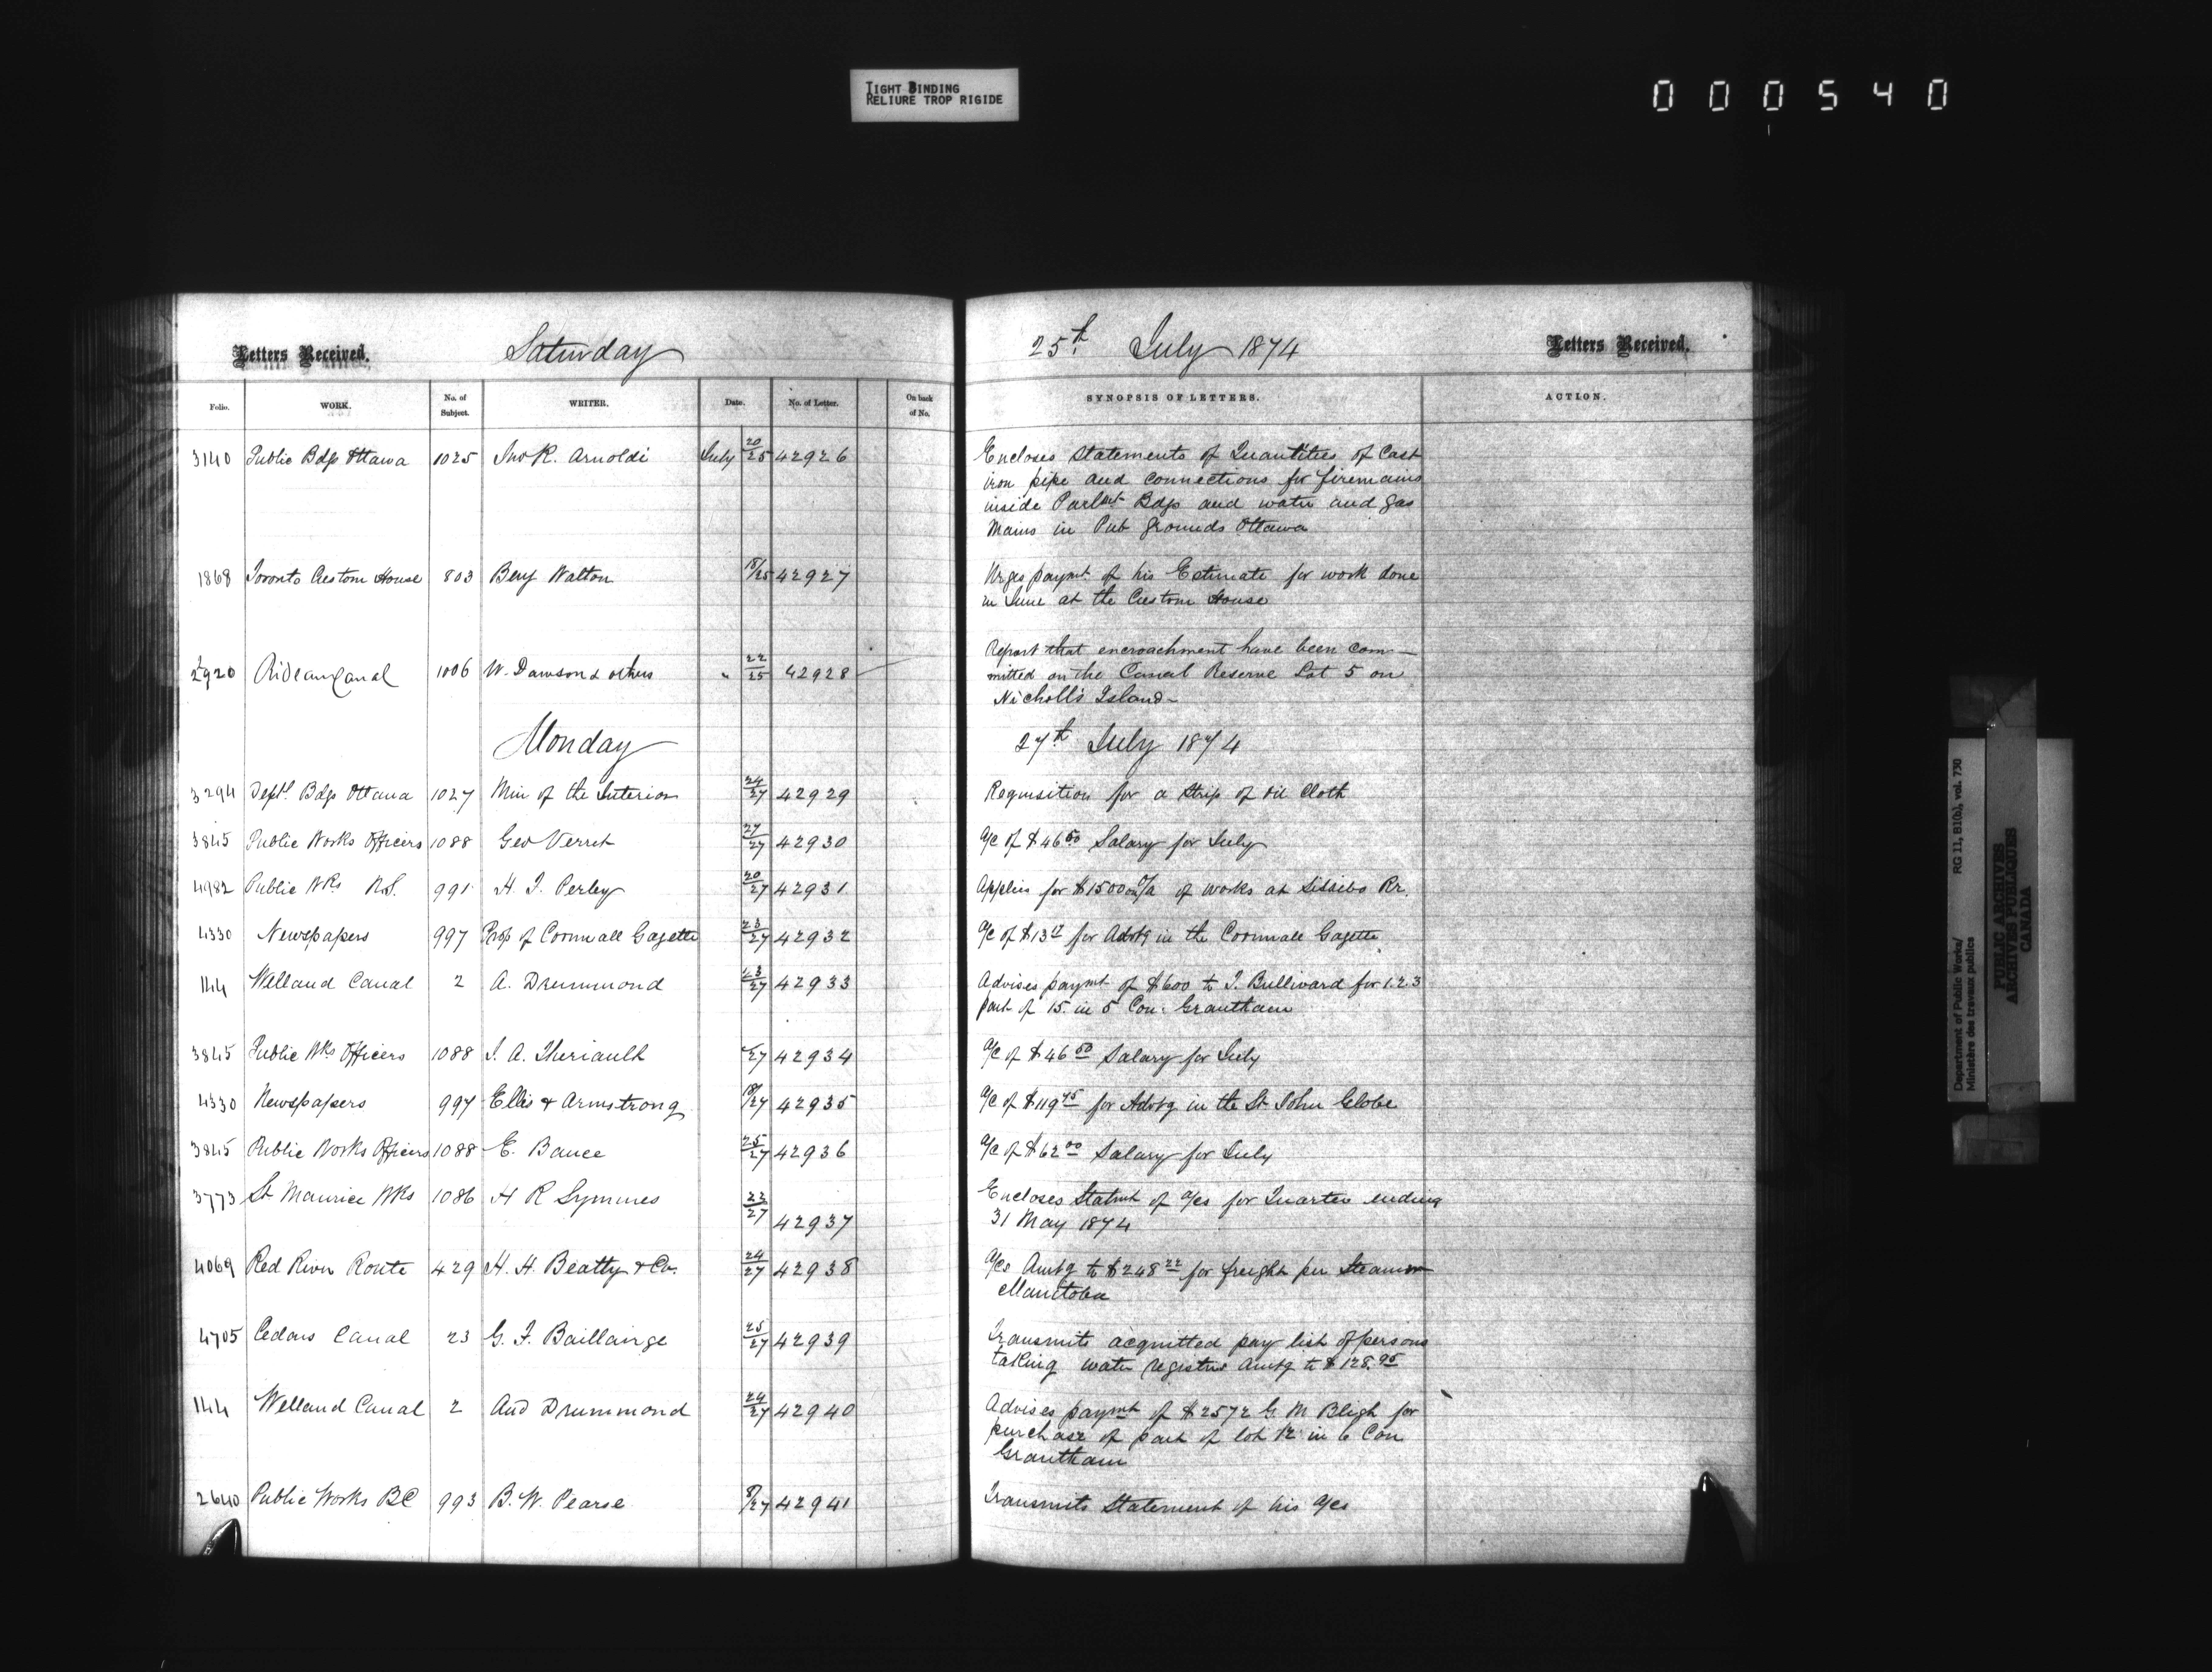 TIGHT BINDING
RELIURE TROP RIGIDE
000540
Letters Received. Saturday 25th July 1874 Letters Received.
Folio. WORK. No. of Subject. WRITER. Date. No. of Letter. On back of No. SYNOPSIS OF LETTERS. ACTION.
3140 Public Bdgs Ottawa 1025 Jno R. Arnoldi July 20/25 42926 Encloses Statements of Quantities of Cast
iron pipe and connections for firemains
inside Parlmt Bdgs and water and gas
Mains in Pub grounds Ottawa
1868 Toronto Custom House 803 Benj Walton 18/25 42927 Urges paymt of his Estimate for work done
in June at the Custom House
2920 Rideau Canal 1006 W. Dawson & others " 22/25 42928 Report that encroachment have been com-
mitted on the Canal Reserve Lot 5 on
Nicholls Island-
Monday 27th July 1874
3294 Deptl Bdgs Ottawa 1027 Min of the Interior 24/27 42929 Requisition for a Strip of oil Cloth
3845 Public Works Officers 1088 Geo Verret 27/27 42930 a/c of $46.50 Salary for July
4982 Public Wks N.S. 991 H. F. Perley 20/27 42931 Applies for $1500 o/a of works at Sissibo Rr.
4330 Newspapers 997 Prop of Cornwall Gazette 23/27 42932 a/c of $13 for Advtg in the Cornwall Gazette
144 Welland Canal 2 A. Drummond 23/27 42933 Advises paymt of $600 to J. Bullivard for 1.2.3
part of 15. in 5 Con: Grantham
3845 Public Wks Officers 1088 J. A. Theriault /27 42934 a/c of $46.50 Salary for July
4330 Newspapers 997 Ellis & Armstrong 18/27 42935 a/c of $119.45 for Advtg in the St John Globe
3845 Public Works Officers 1088 E. Bance 25/27 42936 a/c of $62.00 Salary for July
3773 St Maurice Wks 1086 H R Symmes 22/27 42937 Encloses Statmt of a/cs for Quarter ending
31 May 1874
4069 Red River Route 429 H. H. Beatty & Co. 24/27 42938 a/cs Amtg to $248.22 for freight per Steamer
Manitoba
4705 Cedars Canal 23 G. F. Baillairge 25/27 42939 Transmits acquitted pay list of persons
taking water registers Amtg to $128.95
144 Welland Canal 2 And Drummond 24/27 42940 Advises paymt of $2572 G M Bligh for
purchase of part of lot 12 in 6 Con
Grantham
2640 Public Works BC 993 B. W. Pearse 8/27 42941 Transmits Statement of his a/cs
Department of Public Works/ RG 11, B1(a), vol. 730
Ministère des travaux publics
PUBLIC ARCHIVES
ARCHIVES PUBLIQUES
CANADA